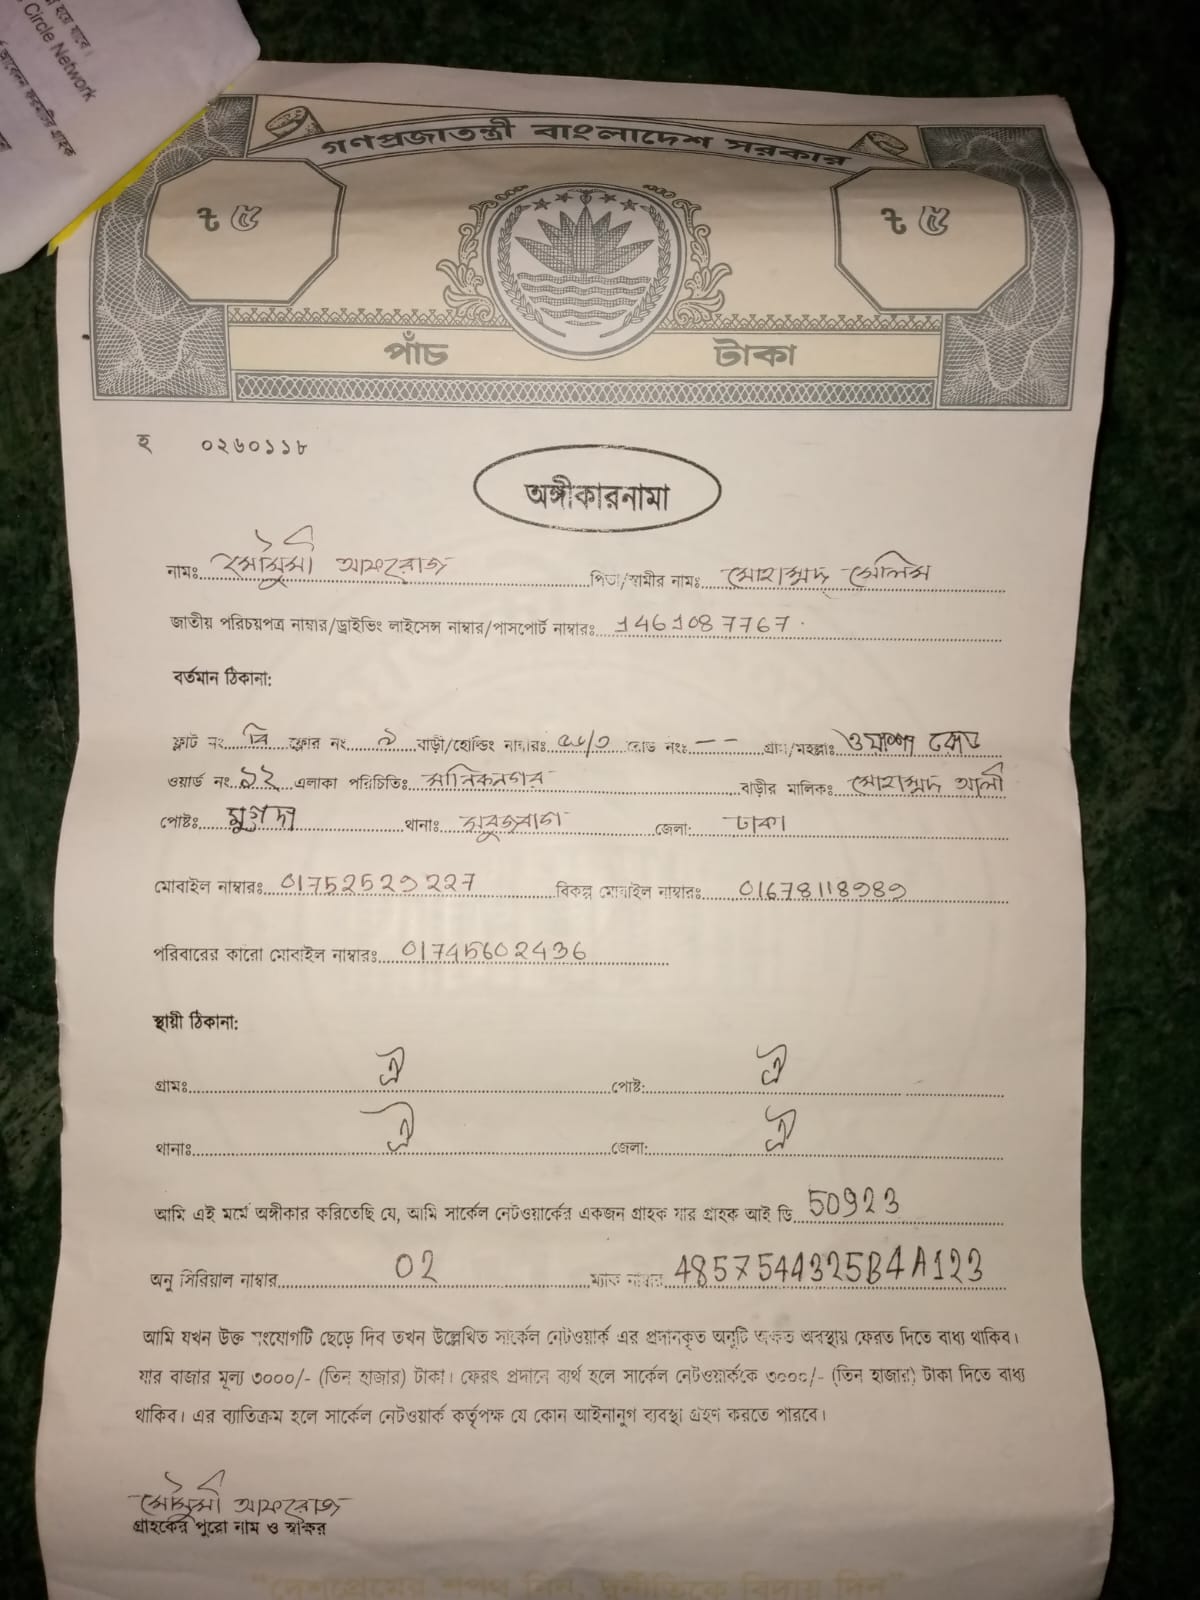 হয়ে যাবে।
Circle Network
আবেদন ফরমটির গ্রাহক
গণপ্রজাতন্ত্রী বাংলাদেশ সরকার
৳ ৫ ৳ ৫
পাঁচ টাকা
হ ০২৬০১১৮
অঙ্গীকারনামা
নামঃ মৌসুমী আফরোজ পিতা/স্বামীর নামঃ মোহাম্মদ সেলিম
জাতীয় পরিচয়পত্র নাম্বার/ড্রাইভিং লাইসেন্স নাম্বার/পাসপোর্ট নাম্বারঃ 1461087767
বর্তমান ঠিকানা:
ফ্লাট নং বি ফ্লোর নং ৯ বাড়ী/হোল্ডিং নাম্বারঃ রোড নংঃ -- গ্রাম/মহল্লাঃ ওয়াসা রোড
ওয়ার্ড নং এলাকা পরিচিতিঃ মানিকনগর বাড়ীর মালিকঃ মোহাম্মদ আলী
পোষ্টঃ মুগদা থানাঃ সবুজবাগ জেলা: ঢাকা
মোবাইল নাম্বারঃ 01752529227 বিকল্প মোবাইল নাম্বারঃ 01678118989
পরিবারের কারো মোবাইল নাম্বারঃ 01745602436
স্থায়ী ঠিকানা:
গ্রামঃ ঐ পোষ্ট: ঐ
থানাঃ ঐ জেলা: ঐ
আমি এই মর্মে অঙ্গীকার করিতেছি যে, আমি সার্কেল নেটওয়ার্কের একজন গ্রাহক যার গ্রাহক আই ডি 50923
অনু সিরিয়াল নাম্বার 02 ম্যাক নাম্বার 4857544325B4A123
আমি যখন উক্ত সংযোগটি ছেড়ে দিব তখন উল্লেখিত সার্কেল নেটওয়ার্ক এর প্রদানকৃত অনুটি অক্ষত অবস্থায় ফেরত দিতে বাধ্য থাকিব।
যার বাজার মূল্য ৩০০০/- (তিন হাজার) টাকা। ফেরৎ প্রদানে ব্যর্থ হলে সার্কেল নেটওয়ার্ককে ৩০০০/- (তিন হাজার) টাকা দিতে বাধ্য
থাকিব। এর ব্যাতিক্রম হলে সার্কেল নেটওয়ার্ক কর্তৃপক্ষ যে কোন আইনানুগ ব্যবস্থা গ্রহণ করতে পারবে।
মৌসুমী আফরোজ
গ্রাহকের পুরো নাম ও স্বাক্ষর
“দেশপ্রেমের শপথ নিন, দুর্নীতিকে বিদায় দিন”